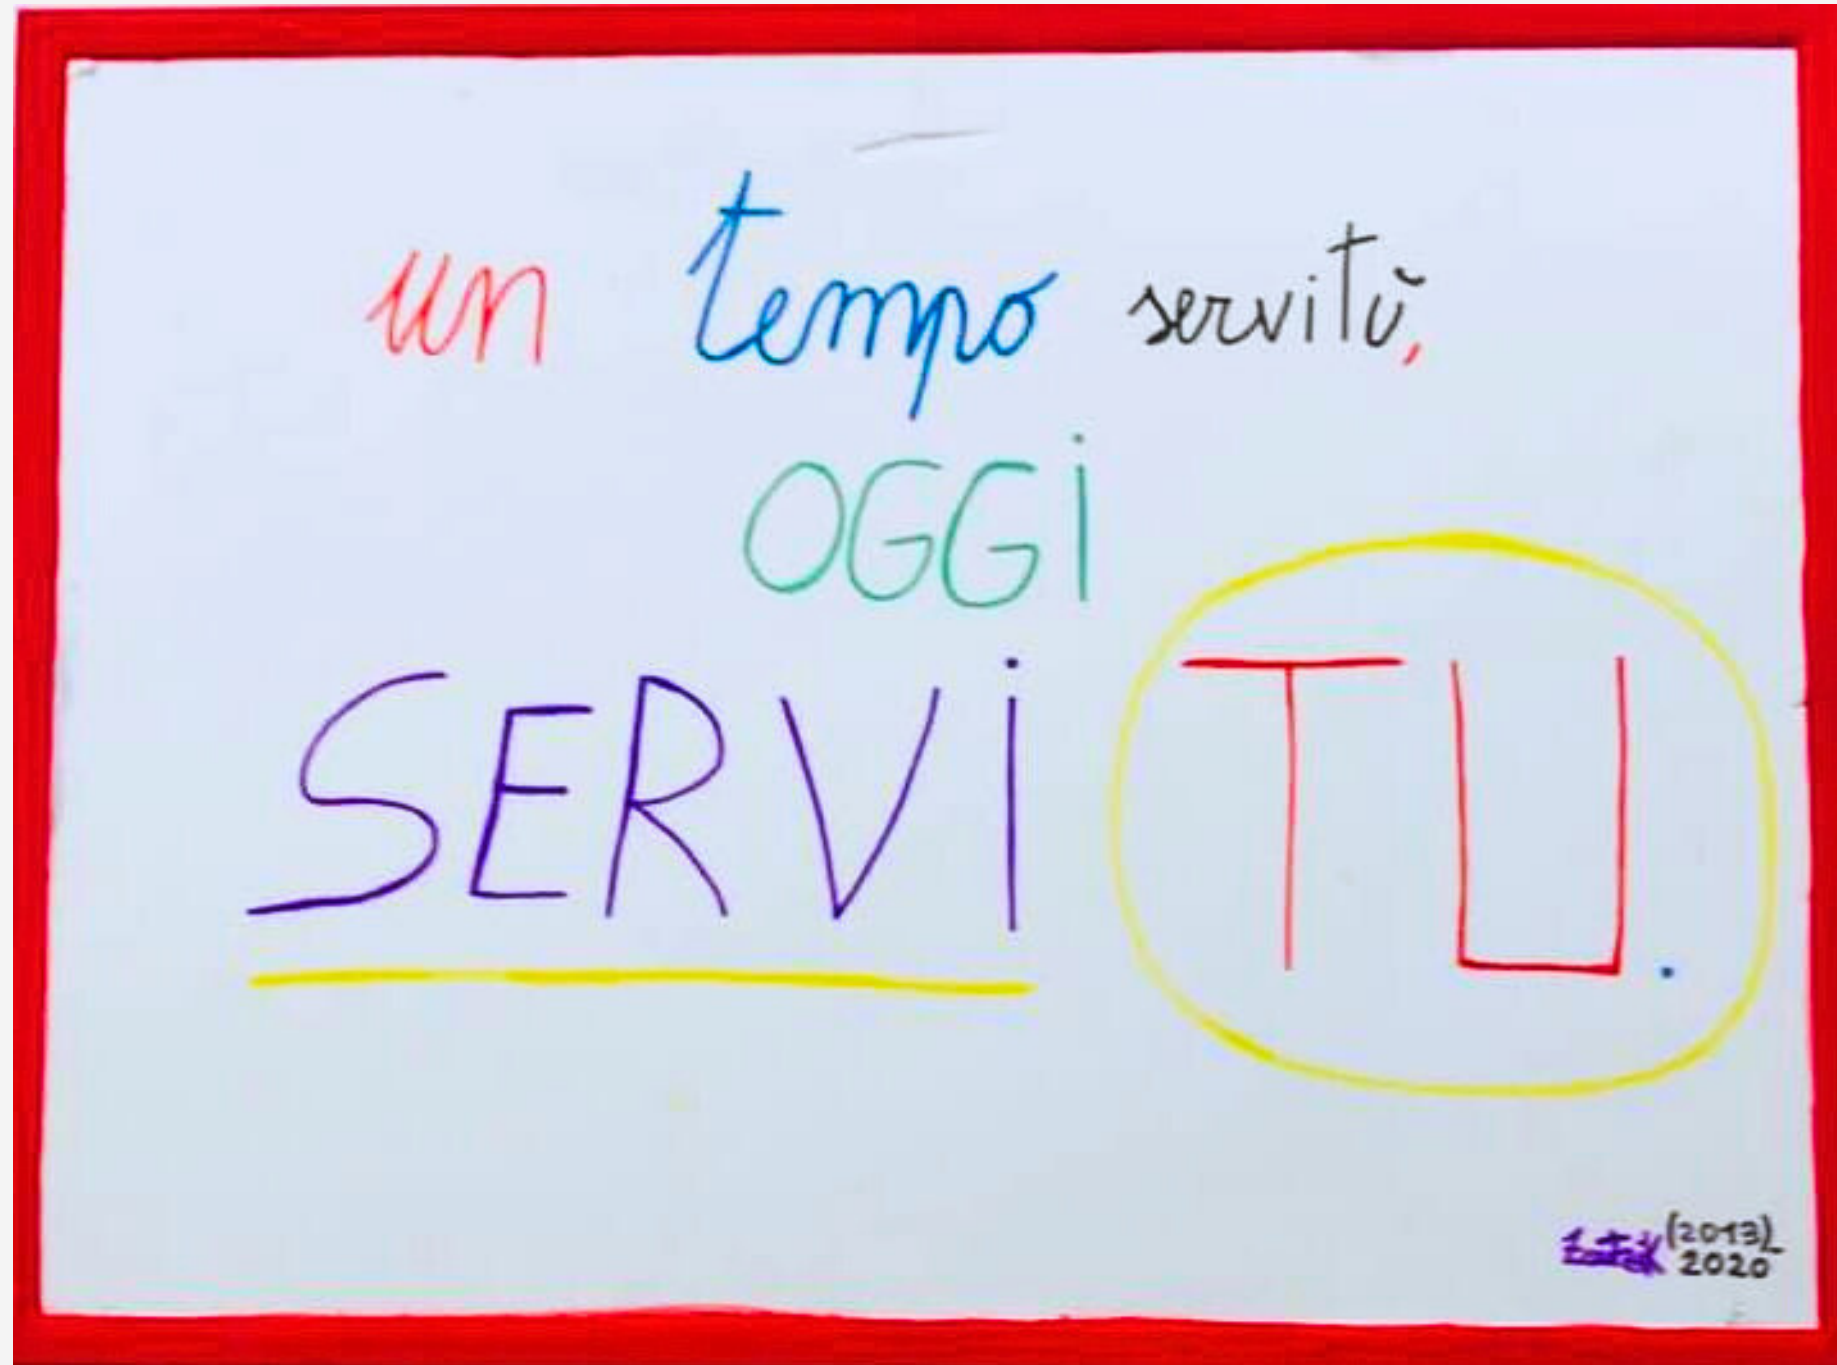 un tempo servitù,
OGGi
SERVi TU.
(2013)
2020